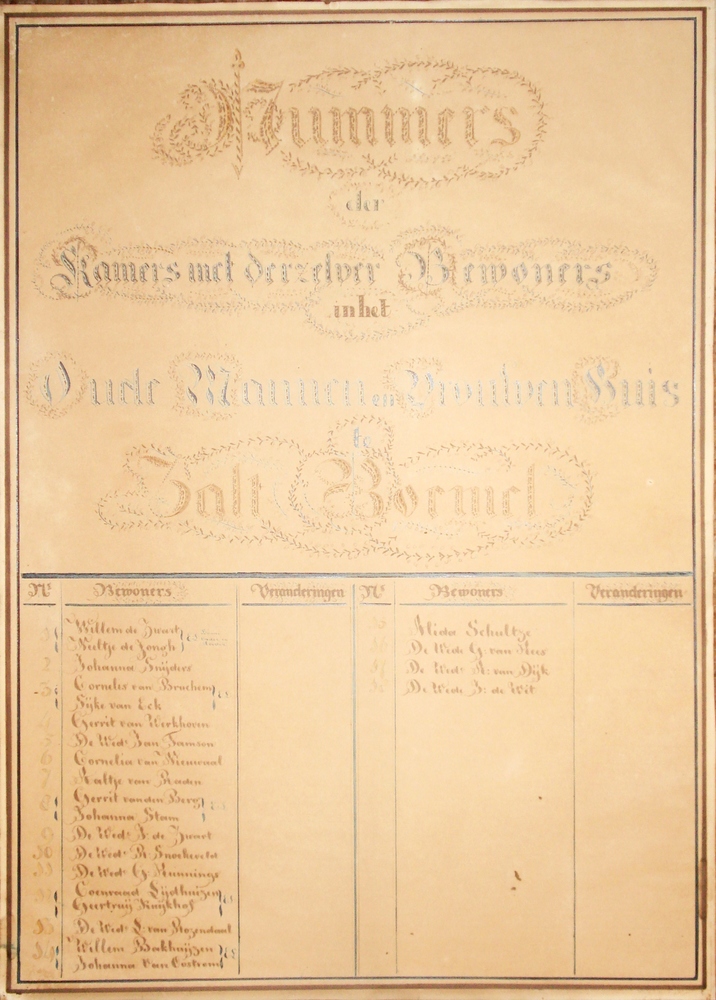 Nummers
der
Kamers met derzelver Bewoners
in het
Oude Mannen en Vrouwen Huis
te
Zalt Boemel
No Bewoners Veranderingen No Bewoners Veranderingen
1 Willem de Zwart
Neeltje de Jongh
2 Johanna Snijders
3 Cornelis van Bruchem
Sijke van Eck
4 Gerrit van Werkhoven
5 De Wed: Jan Samson
6 Cornelia van Nieuwaal
7 Aaltje van Baden
8 Gerrit van den Berg
Johanna Stam
9 De Wed: J: de Zwart
10 De Wed:
11 De Wed: G:
12 Coenraad Lijdhuizen
Geertruij Kuijkhof
13 De Wed: L: van Rozendaal
14 Willem Bakhuijzen
Johanna van Oostrom
15 Alida Schultze
16 De Wed: G: van Hees
17 De Wed: A: van Dijk
18 De Wed: J: de Wit